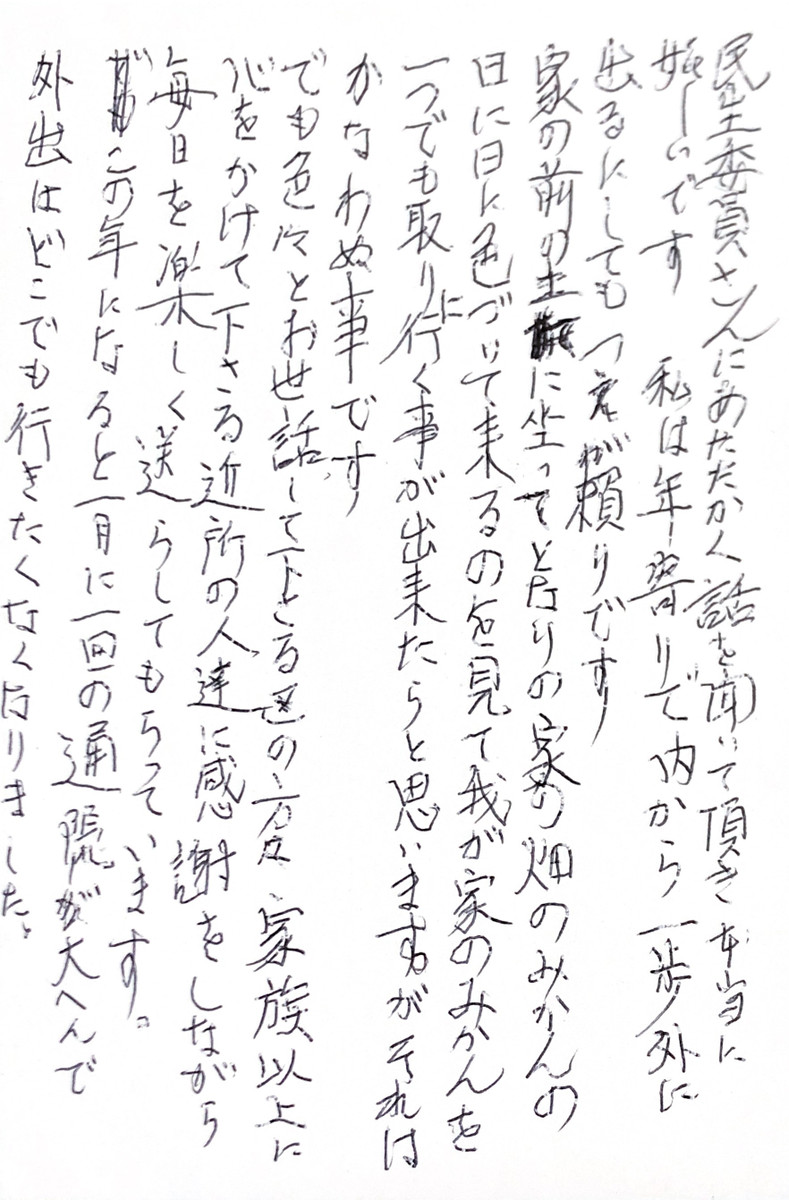 民生委員さんにあたたかく話を聞いて頂き本当に
嬉しいです　私は年寄りで内から一歩外に
出るにしてもつえが頼りです
家の前の土に坐ってとなりの家の畑のみかんの
日に日に色づいて来るのを見て我が家のみかんを
一つでも取りに行く事が出来たらと思いますがそれは
かなわぬ事です
でも色々とお世話して下さる区の方々家族以上に
心をかけて下さる近所の人達に感謝をしながら
毎日を楽しく送らしてもらっています。
この年になると一月に一回の通院が大へんで
外出はどこでも行きたくなくなりました、